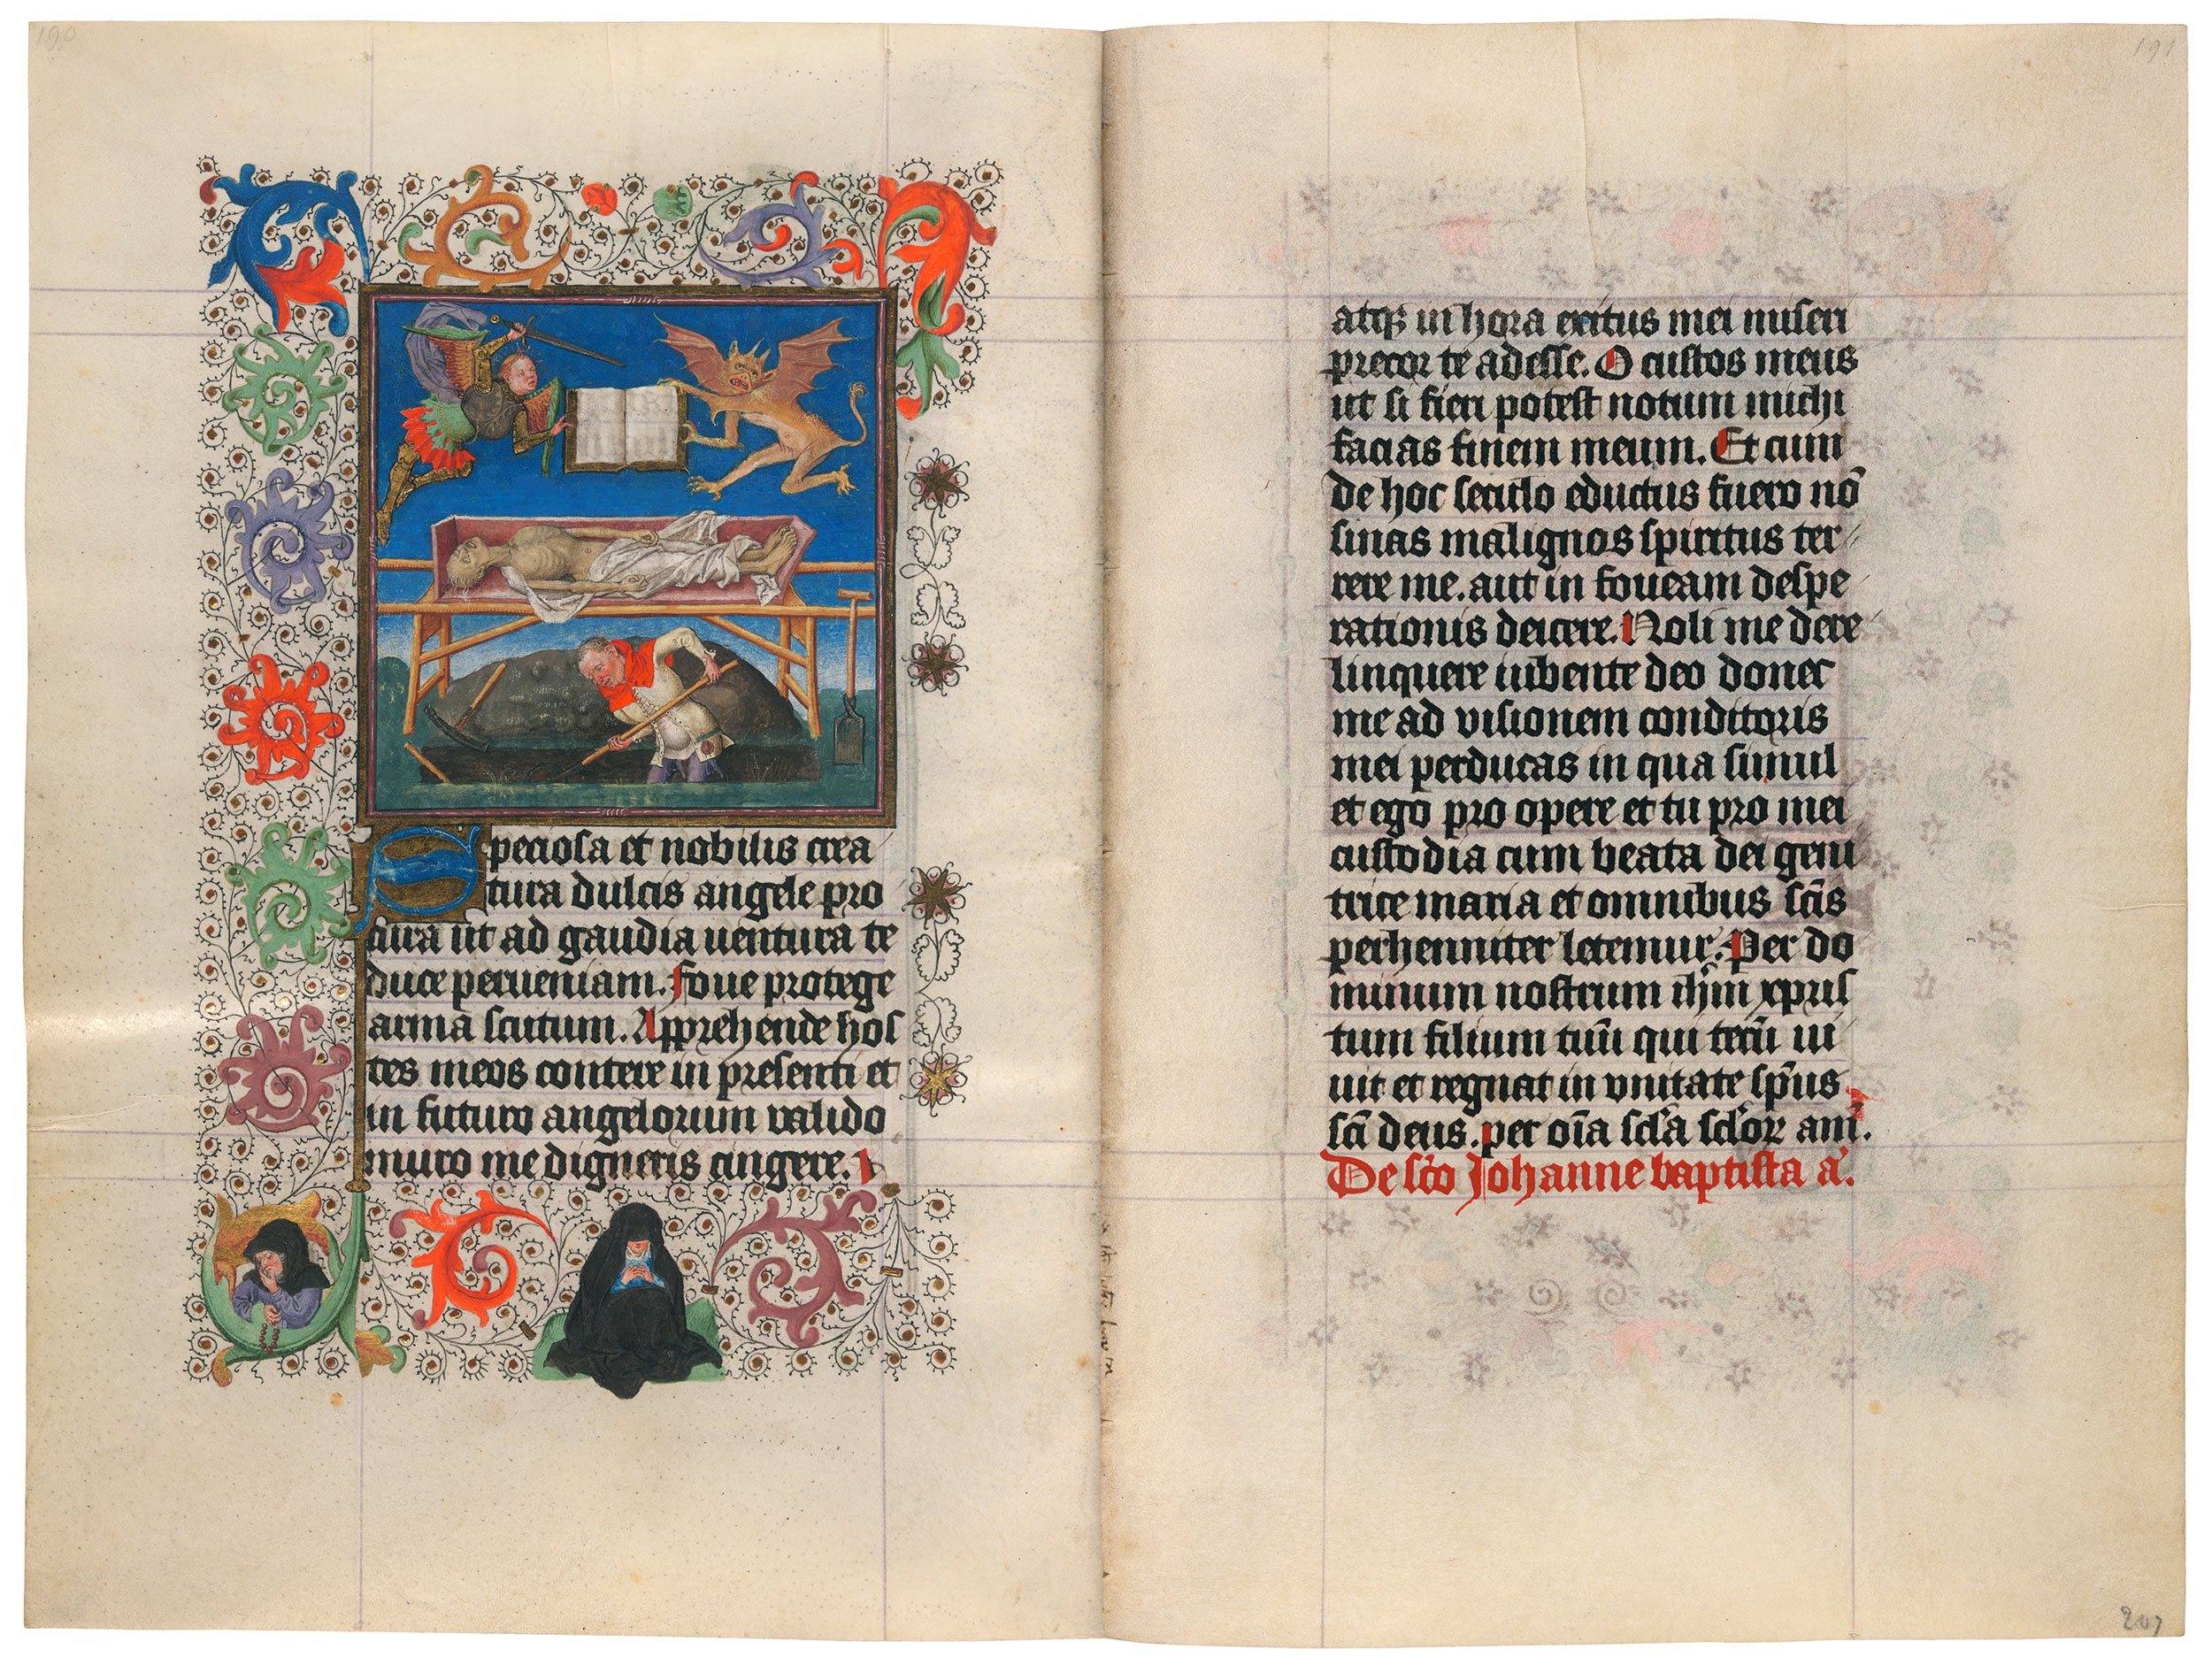 190
Speciosa et nobilis crea
tura dulcis angele pro
cura ut ad gaudia uentura te
duce perueniam. foue protege
arma scutum. Apprehende hos
tes meos contere in presenti et
in futuro angelorum valido
muro me digneris cingere.
191
atqꝫ in hora exitus mei miseri
precor te adesse. O custos meus
ut si fieri potest notum michi
facias finem meum. Et cum
de hoc seculo eductus fuero nō
sinas malignos spiritus ter
rere me. aut in foueam despe
rationis deicere. Noli me dere
linquere iubente deo donec
me ad visionem conditoris
mei perducas in qua simul
et ego pro opere et tu pro mei
custodia cum beata dei geni
trice maria et omnibus scīs
perhenniter letemur. Per do
minum nostrum ihm̄ xpris
tum filium tuū qui tecū ui
uit et regnat in vnitate sp̄us
scī deus. per oīa sc̄la sc̄lor am̄.
De sc̄o Johanne baptista a.
207